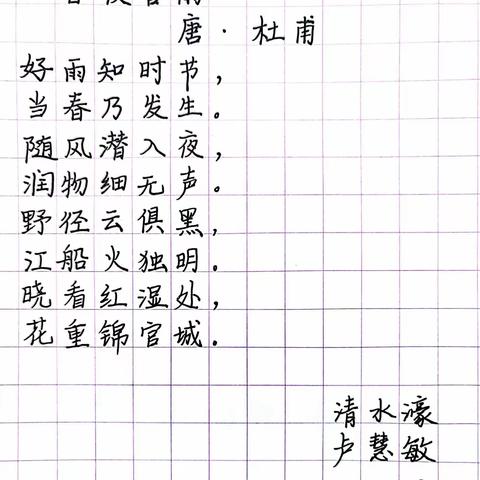 唐·杜甫
好雨知时节，
当春乃发生。
随风潜入夜，
润物细无声。
野径云俱黑，
江船火独明。
晓看红湿处，
花重锦官城。
清水濠
卢慧敏